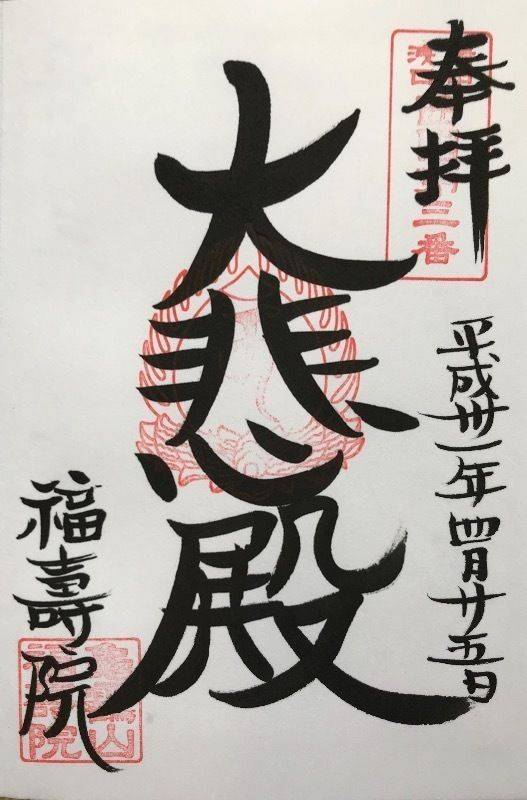 奉拝
三番
平成卅一年四月廿五日
大悲殿
福壽院